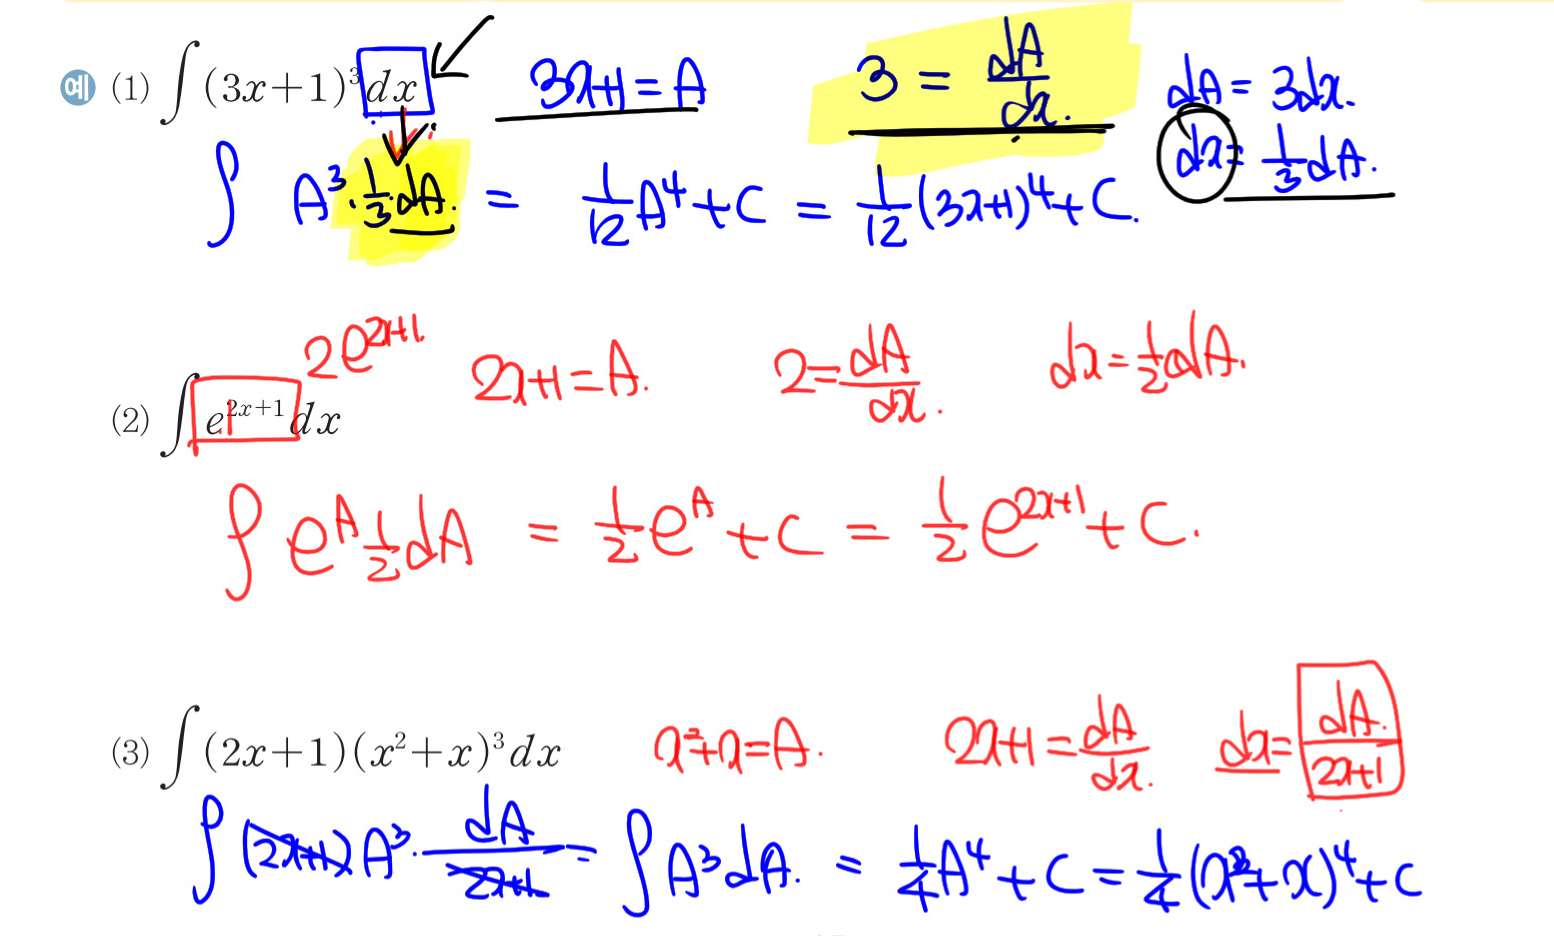 예 (1) ∫(3x+1)³dx 3x+1=A 3=dA/dx. dA=3dx.
dx=1/3dA.
∫ A³·1/3·dA. = 1/12A⁴+C = 1/12(3x+1)⁴+C.
2e^(2x+1). 2x+1=A. 2=dA/dx. dx=1/2dA.
(2) ∫e^(2x+1)dx
∫ e^A 1/2dA = 1/2e^A+C = 1/2e^(2x+1)+C.
(3) ∫(2x+1)(x²+x)³dx x²+x=A. 2x+1=dA/dx. dx=dA./2x+1
∫(2x+1)A³·dA/2x+1=∫A³dA. = 1/4A⁴+C=1/4(x²+x)⁴+C